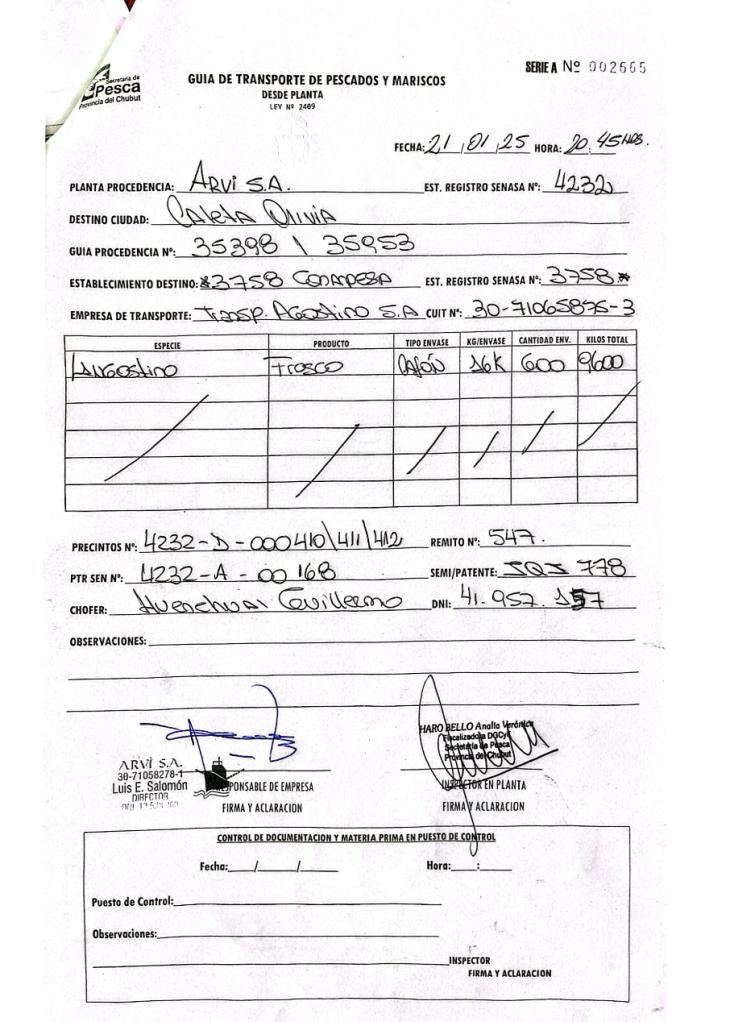 SERIE A Nº 002665
Secretaría de
Pesca
Provincia del Chubut
GUIA DE TRANSPORTE DE PESCADOS Y MARISCOS
DESDE PLANTA
LEY Nº 2409
FECHA: 21,01,25 HORA: 20:45 HRS.
PLANTA PROCEDENCIA: ARVI S.A. EST. REGISTRO SENASA Nº: 4232
DESTINO CIUDAD: Caleta Olivia
GUIA PROCEDENCIA Nº: 35398 \ 35953
ESTABLECIMIENTO DESTINO: *3758 Conarpesa EST. REGISTRO SENASA Nº: 3758*
EMPRESA DE TRANSPORTE: Transp. Agostino S.A CUIT Nº: 30-71065875-3
ESPECIE PRODUCTO TIPO ENVASE KG/ENVASE CANTIDAD ENV. KILOS TOTAL
Langostino Fresco Cajón 16K 600 9600
PRECINTOS Nº: 4232-D-000410\411\412 REMITO Nº: 547.
PTR SEN Nº: 4232-A-00168 SEMI/PATENTE: 778
CHOFER: Guillermo DNI: 41.957.157
OBSERVACIONES:
ARVI S.A.
30-71058278-1
Luis E. Salomón
DIRECTOR
RESPONSABLE DE EMPRESA
FIRMA Y ACLARACION
HARO BELLO Analía Verónica
Fiscalizadora DGCyF
Secretaría de Pesca
Provincia del Chubut
INSPECTOR EN PLANTA
FIRMA Y ACLARACION
CONTROL DE DOCUMENTACION Y MATERIA PRIMA EN PUESTO DE CONTROL
Fecha:___/___/___ Hora:___:___
Puesto de Control:
Observaciones:
INSPECTOR
FIRMA Y ACLARACION